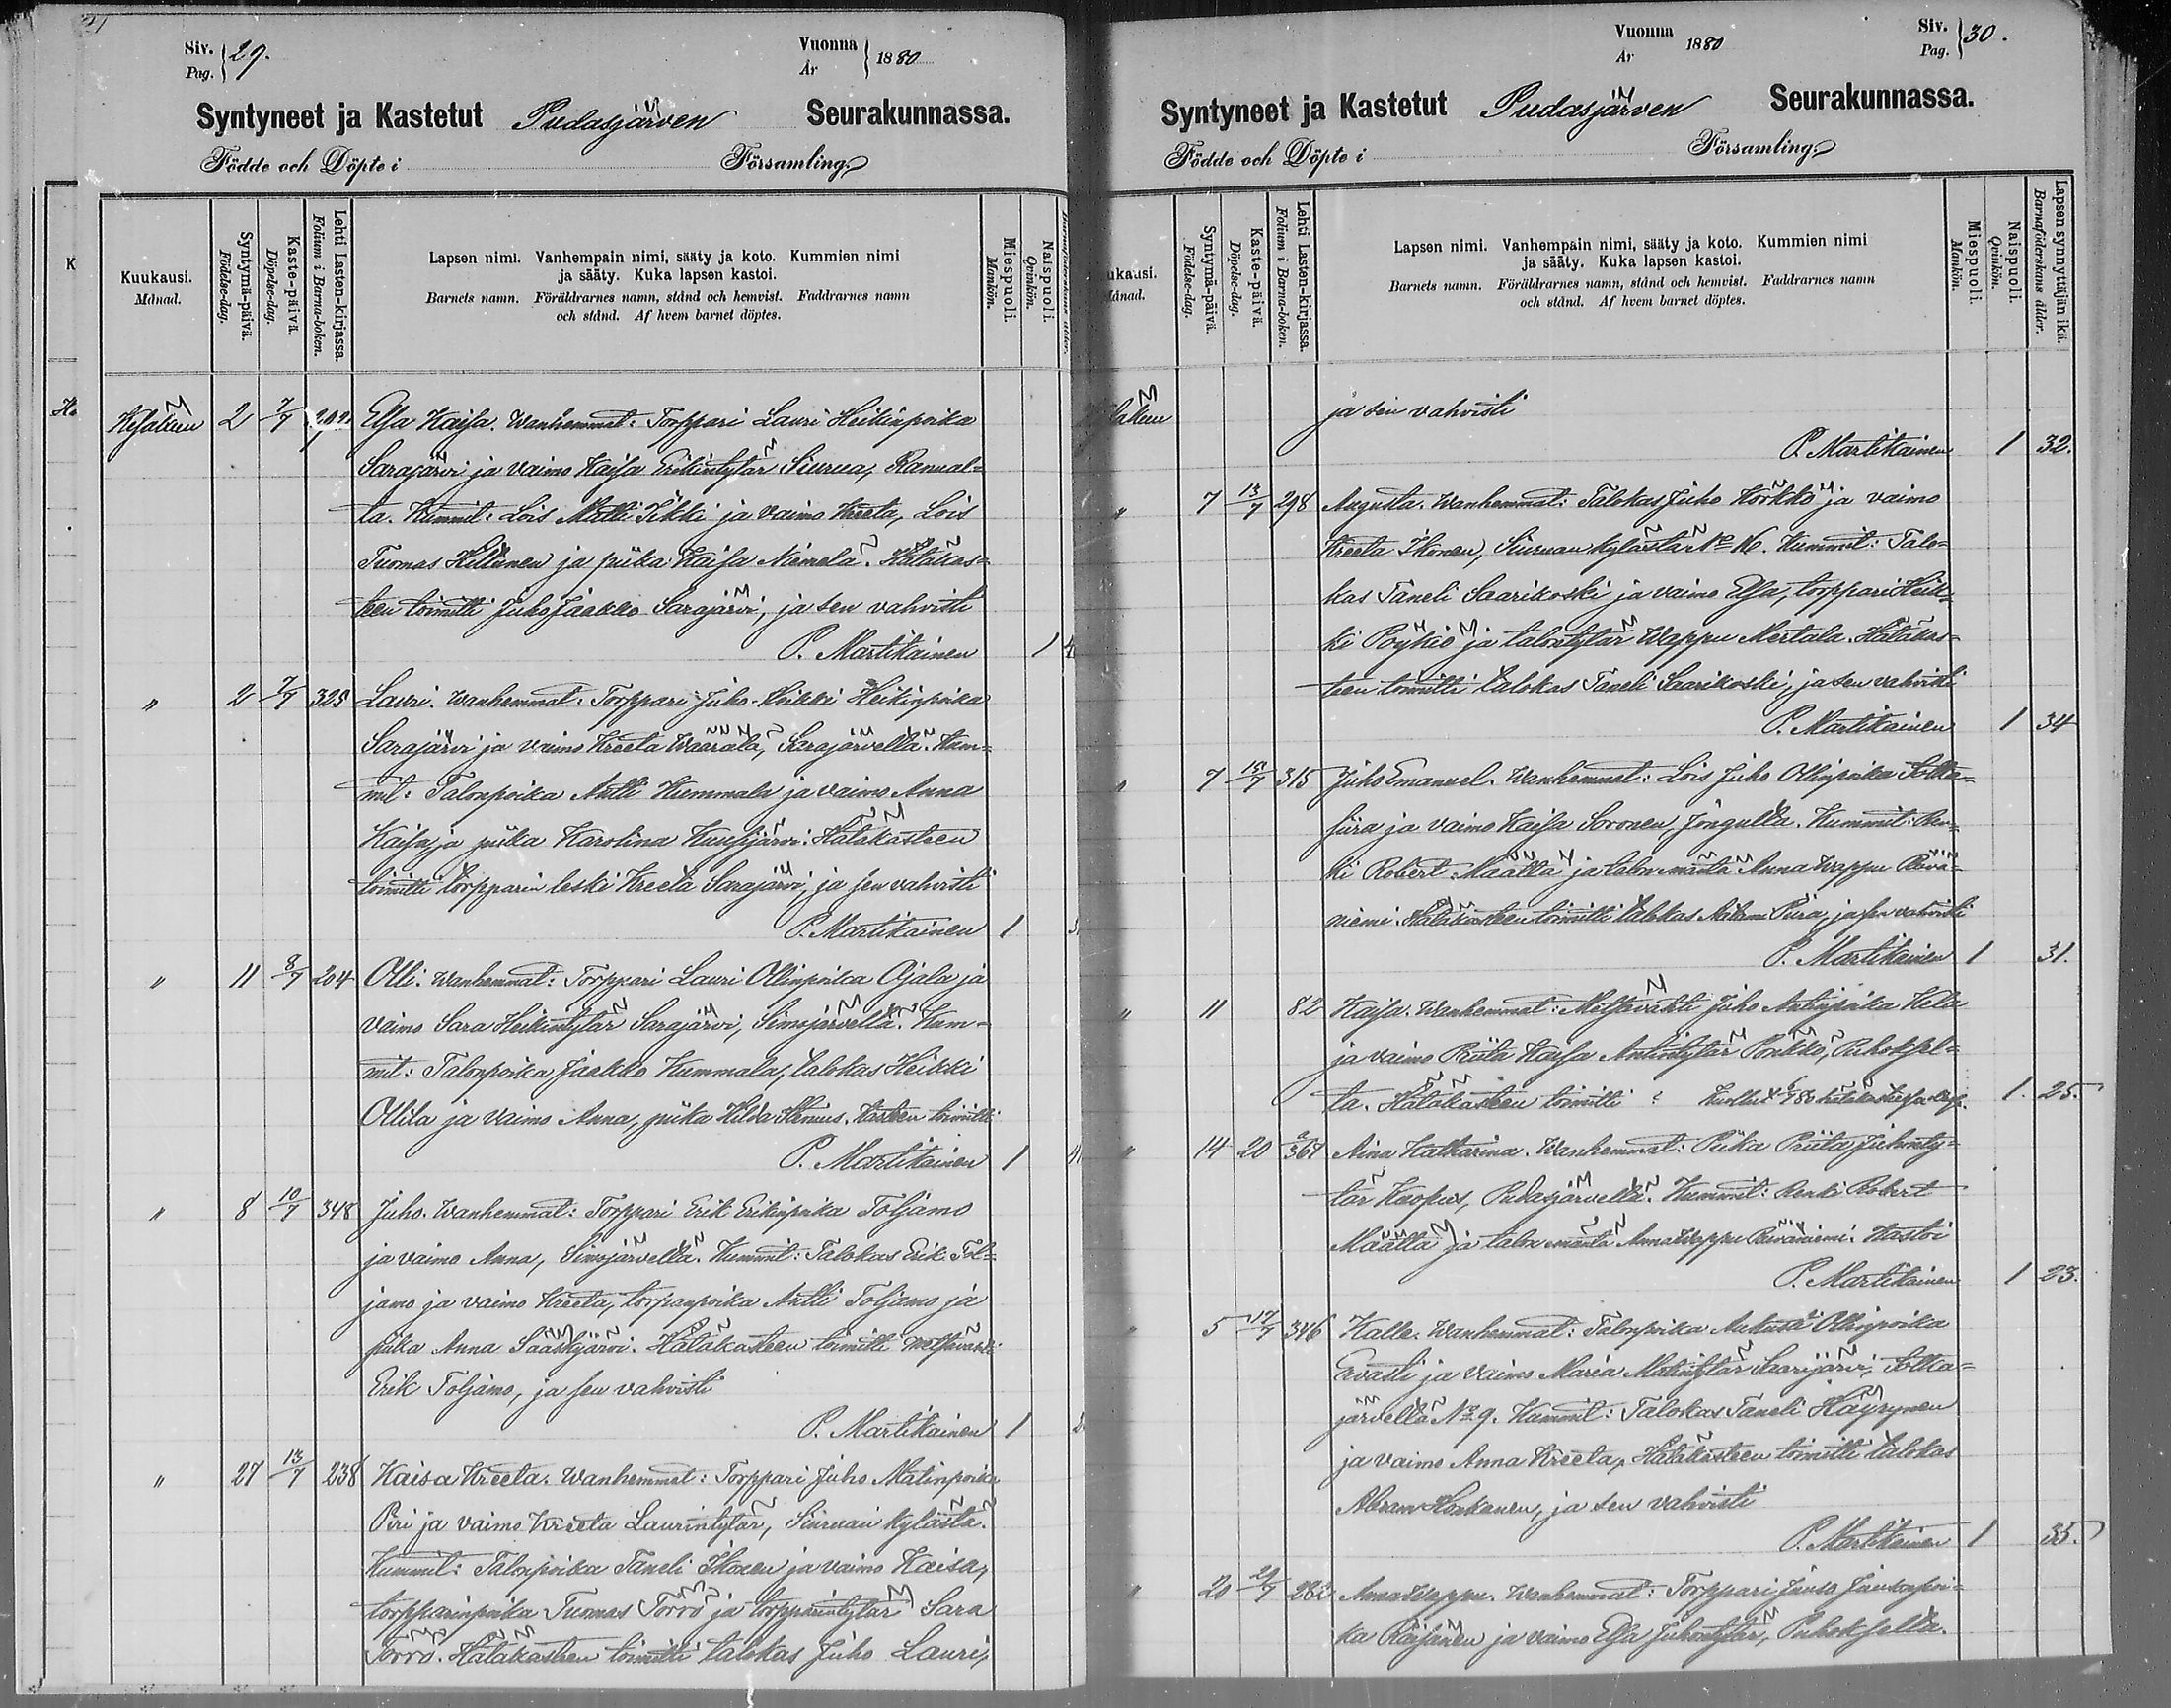 Siv. Pag. } 29.
Vuonna År } 1880
Syntyneet ja Kastetut Pudasjärven Seurakunnassa.
Födde och Döpte i Församling.
Kuukausi. Månad.
Syntymä-päivä. Födelse-dag.
Kaste-päivä. Döpelse-dag.
Lehti Lasten-kirjassa. Folium i Barna-boken.
Lapsen nimi. Vanhempain nimi, sääty ja koto. Kummien nimi
ja sääty. Kuka lapsen kastoi.
Barnets namn. Föräldrarnes namn, stånd och hemvist. Faddrarnes namn
och stånd. Af hvem barnet döptes.
Miespuoli. Mankön.
Naispuoli. Qvinkön.
Kesäkuu 2 7/7 292 Elsa Kaisa. Wanhemmat: Torppari Lauri Heikinpoika
Sarajärvi ja vaimo Kaisa Erikintytär Siurua, Ranual=
ta. Kummit: Lois Matti Ikki ja vaimo Kreeta, Lois
Tuomas Hiltunen ja piika Kaisa Niemelä. Hätäkas=
teen toimitti Juho Jaakko Sarajärvi, ja sen vahvisti
P. Martikainen 1
" 2 7/7 325 Lauri. Wanhemmat: Torppari Juho Heikki Heikinpoika
Sarajärvi ja vaimo Kreeta Wäärälä, Sarajärvellä. Kum=
mit: Talonpoika Antti Kummala ja vaimo Anna
Kaisa ja piika Karolina Kuusijärvi. Hätäkasteen
toimitti torpparin leski Kreeta Sarajärvi, ja sen vahvisti
P. Martikainen 1
" 11 8/7 204 Olli. Wanhemmat: Torppari Lauri Ollinpoika Ojala ja
vaimo Sara Heikintytär Sarajärvi, Simojärvellä. Kum=
mit: Talonpoika Jaakko Kummala, talokas Heikki
Ollila ja vaimo Anna, piika Hilda Kasteen toimitti
P. Martikainen 1
" 8 10/7 348 Juho. Wanhemmat: Torppari Erik Erikinpoika Toljamo
ja vaimo Anna, Simojärvellä. Kummit: Talokas Erik Tol=
jamo ja vaimo Kreeta, torpanpoika Antti Toljamo ja
piika Anna Sääskijärvi. Hätäkasteen toimitti metsävahti
Erik Toljamo, ja sen vahvisti
P. Martikainen 1
" 27 13/7 238 Kaisa Kreeta. Wanhemmat: Torppari Juho Matinpoika
Piri ja vaimo Kreeta Laurintytär, Siuruan kylästä.
Kummit: Talonpoika Taneli Ikonen ja vaimo Kaisa,
torpparinpoika Tuomas Törrö ja torpparintytär Sara
Törrö. Hätäkasteen toimitti talokas Juho Lauri,
Vuonna År 1880
Siv. Pag. } 30.
Syntyneet ja Kastetut Pudasjärven Seurakunnassa.
Födde och Döpte i Församling.
Kuukausi. Månad.
Syntymä-päivä. Födelse-dag.
Kaste-päivä. Döpelse-dag.
Lehti Lasten-kirjassa. Folium i Barna-boken.
Lapsen nimi. Vanhempain nimi, sääty ja koto. Kummien nimi
ja sääty. Kuka lapsen kastoi.
Barnets namn. Föräldrarnes namn, stånd och hemvist. Faddrarnes namn
och stånd. Af hvem barnet döptes.
Miespuoli. Mankön.
Naispuoli. Qvinkön.
Lapsen synnyttäjän ikä. Barnaföderskans ålder.
ja sen vahvisti
P. Martikainen 1 32.
" 7 13/7 298 Augusta. Wanhemmat: Talokas Juho Körkkö ja vaimo
Kreeta Ikonen, Siuruan kylästä No 16. Kummit: Talo=
kas Taneli Saarikoski ja vaimo Elsa, torppari Heik=
ki Pöykiö ja talontytär Wappu Mertala. Hätäkas=
teen toimitti talokas Taneli Saarikoski, ja sen vahvisti
P. Martikainen 1 34
" 7 15/7 315 Juho Emanuel. Wanhemmat: Lois Juho Ollinpoika Sotka=
siira ja vaimo Kaisa Soronen, Jongulla. Kummit: Ren=
ki Robert Määttä ja talon emäntä Anna Wappu Päivä=
niemi. Hätäkasteen toimitti talokas Piira, ja sen vahvisti
P. Martikainen 1 31.
" 11 82 Kaisa. Wanhemmat: Metsävahti Juho Antinpoika Kela
ja vaimo Priita Kaisa Antintytär Ponkko, Puhoksel=
ta. Hätäkasteen toimitti ? Kuollut 1. 25.
" 14 20 367 Aina Katharina. Wanhemmat: Piika Priita Juhonty=
tär Kuopus, Pudasjärvellä. Kummit: Renki Robert
Määttä ja talon emäntä Anna Wappu Päiväniemi. Kastoi
P. Martikainen 1 23.
" 5 17/7 346 Kalle. Wanhemmat: Talonpoika Ollinpoika
Ervasti ja vaimo Maria Matintytär Saarijärvi, Sotka=
järvellä No 9. Kummit: Talokas Taneli Häyrynen
ja vaimo Anna Kreeta, Hätäkasteen toimitti talokas
Abram Honkanen, ja sen vahvisti
P. Martikainen 1 35.
" 20 Anna Wappu. Wanhemmat: Torppari
ka Räisänen ja vaimo Elsa Juhontytär, Puhoksella.